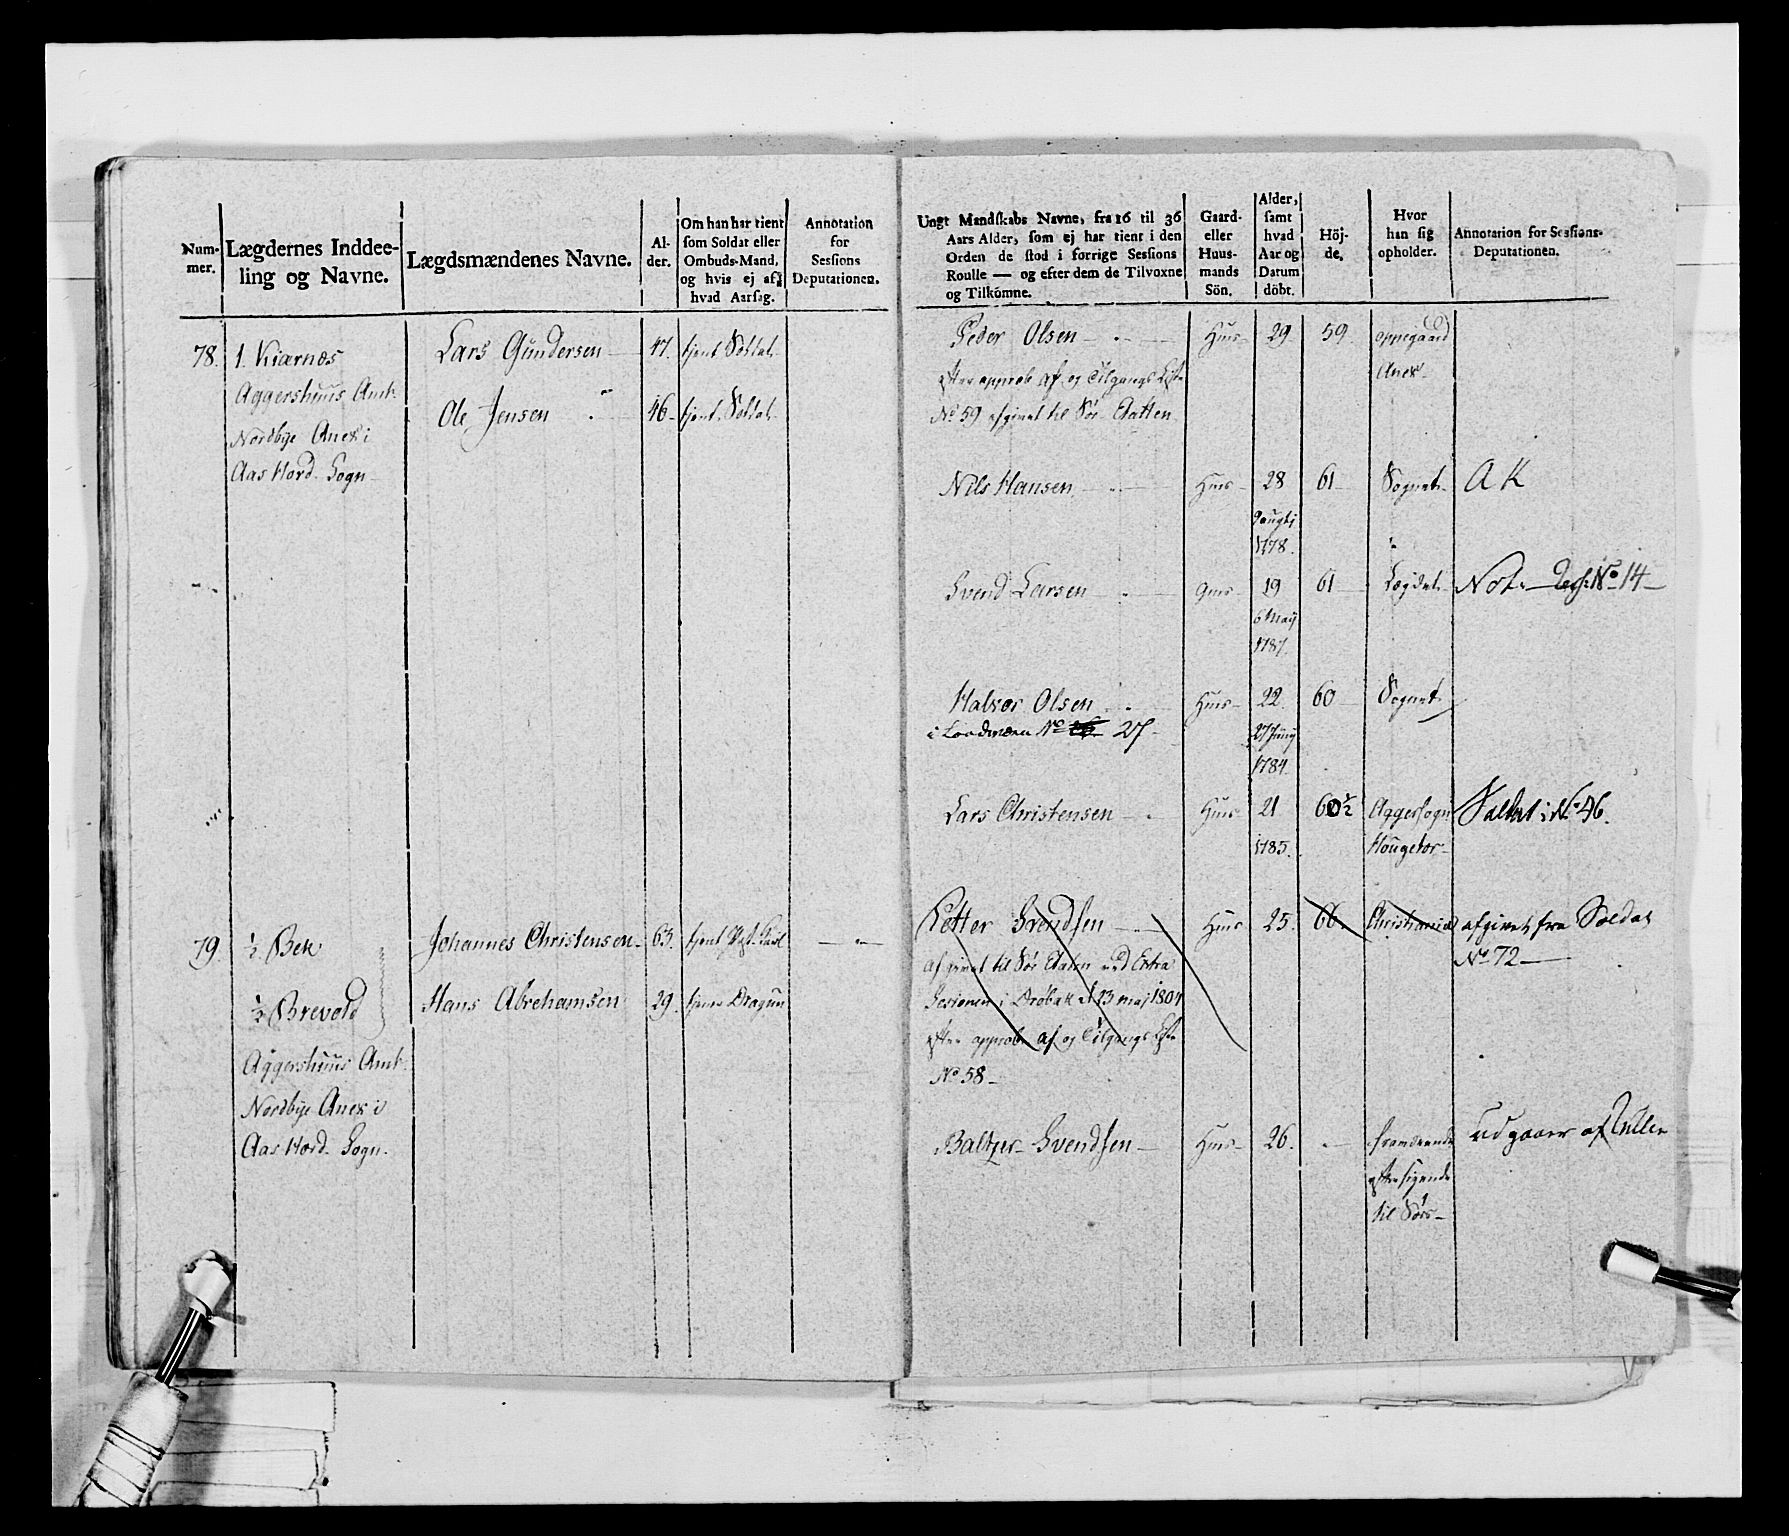 Num-
mer.
Lægdernes Inddee-
ling og Navne.
Lægdsmændenes Navne.
Al-
der.
Om han har tient
som Soldat eller
Ombuds-Mand,
og hvis ej af
hvad Aarsag.
Annotation
for
Sessions
Deputationen.
78. 1. Kiærnæs
Aggershuus Amt
Nordbye Anex i
Aas Hovd. Sogn
Lars Gundersen 47. tjent Soldat
Ole Jensen 46. tjent Soldat
79. ½ Bek
½ Brevold
Aggershuus Amt
Nordbye Anex i
Aas Hovd. Sogn.
Johannes Christensen 63. tjent
Hans Abrehamsen 29. tjener Dragun
Ungt Mandskabs Navne, fra 16 til 36
Aars Alder, som ej har tient i den
Orden de stod i forrige Sessions
Roulle — og efter dem de Tilvoxne
og Tilkomne.
Gaard-
eller
Huus-
mands
Sön.
Alder,
samt
hvad
Aar og
Datum
döbt.
Höj-
de.
Hvor
han sig
opholder.
Annotation for Sessions-
Deputationen.
Peder Olsen Huus 29. 59. oppigaard
Anex
efter approb af og Tilgangs Liste
No 59 afgivet til Søe Etatten
Nils Hansen Huus 28 61 Sognet A K
9 augti
1778.
Svend Larsen 19 61 Lægdet Not. No 14
6 Maij
1787.
Halvor Olsen Huus 22. 60 Sognet
i Landværn No 27 27 Junij
1784.
Lars Christensen Huus 21 60½ Aggersogn Soldat i No 46.
1785. Hougetor
Petter Svendsen Huus 25. 60. Christiania afgivet fra Soldat
No 72
afgivet til Søe Etaten ved Extra
Sesionen i Drøbak d 13 maj 1804
efter approb af og Tilgangs Liste
No 58
Baltzer Svendsen Huus 26. fraværende udgaaer af Rullen
efter sigende
til Søes